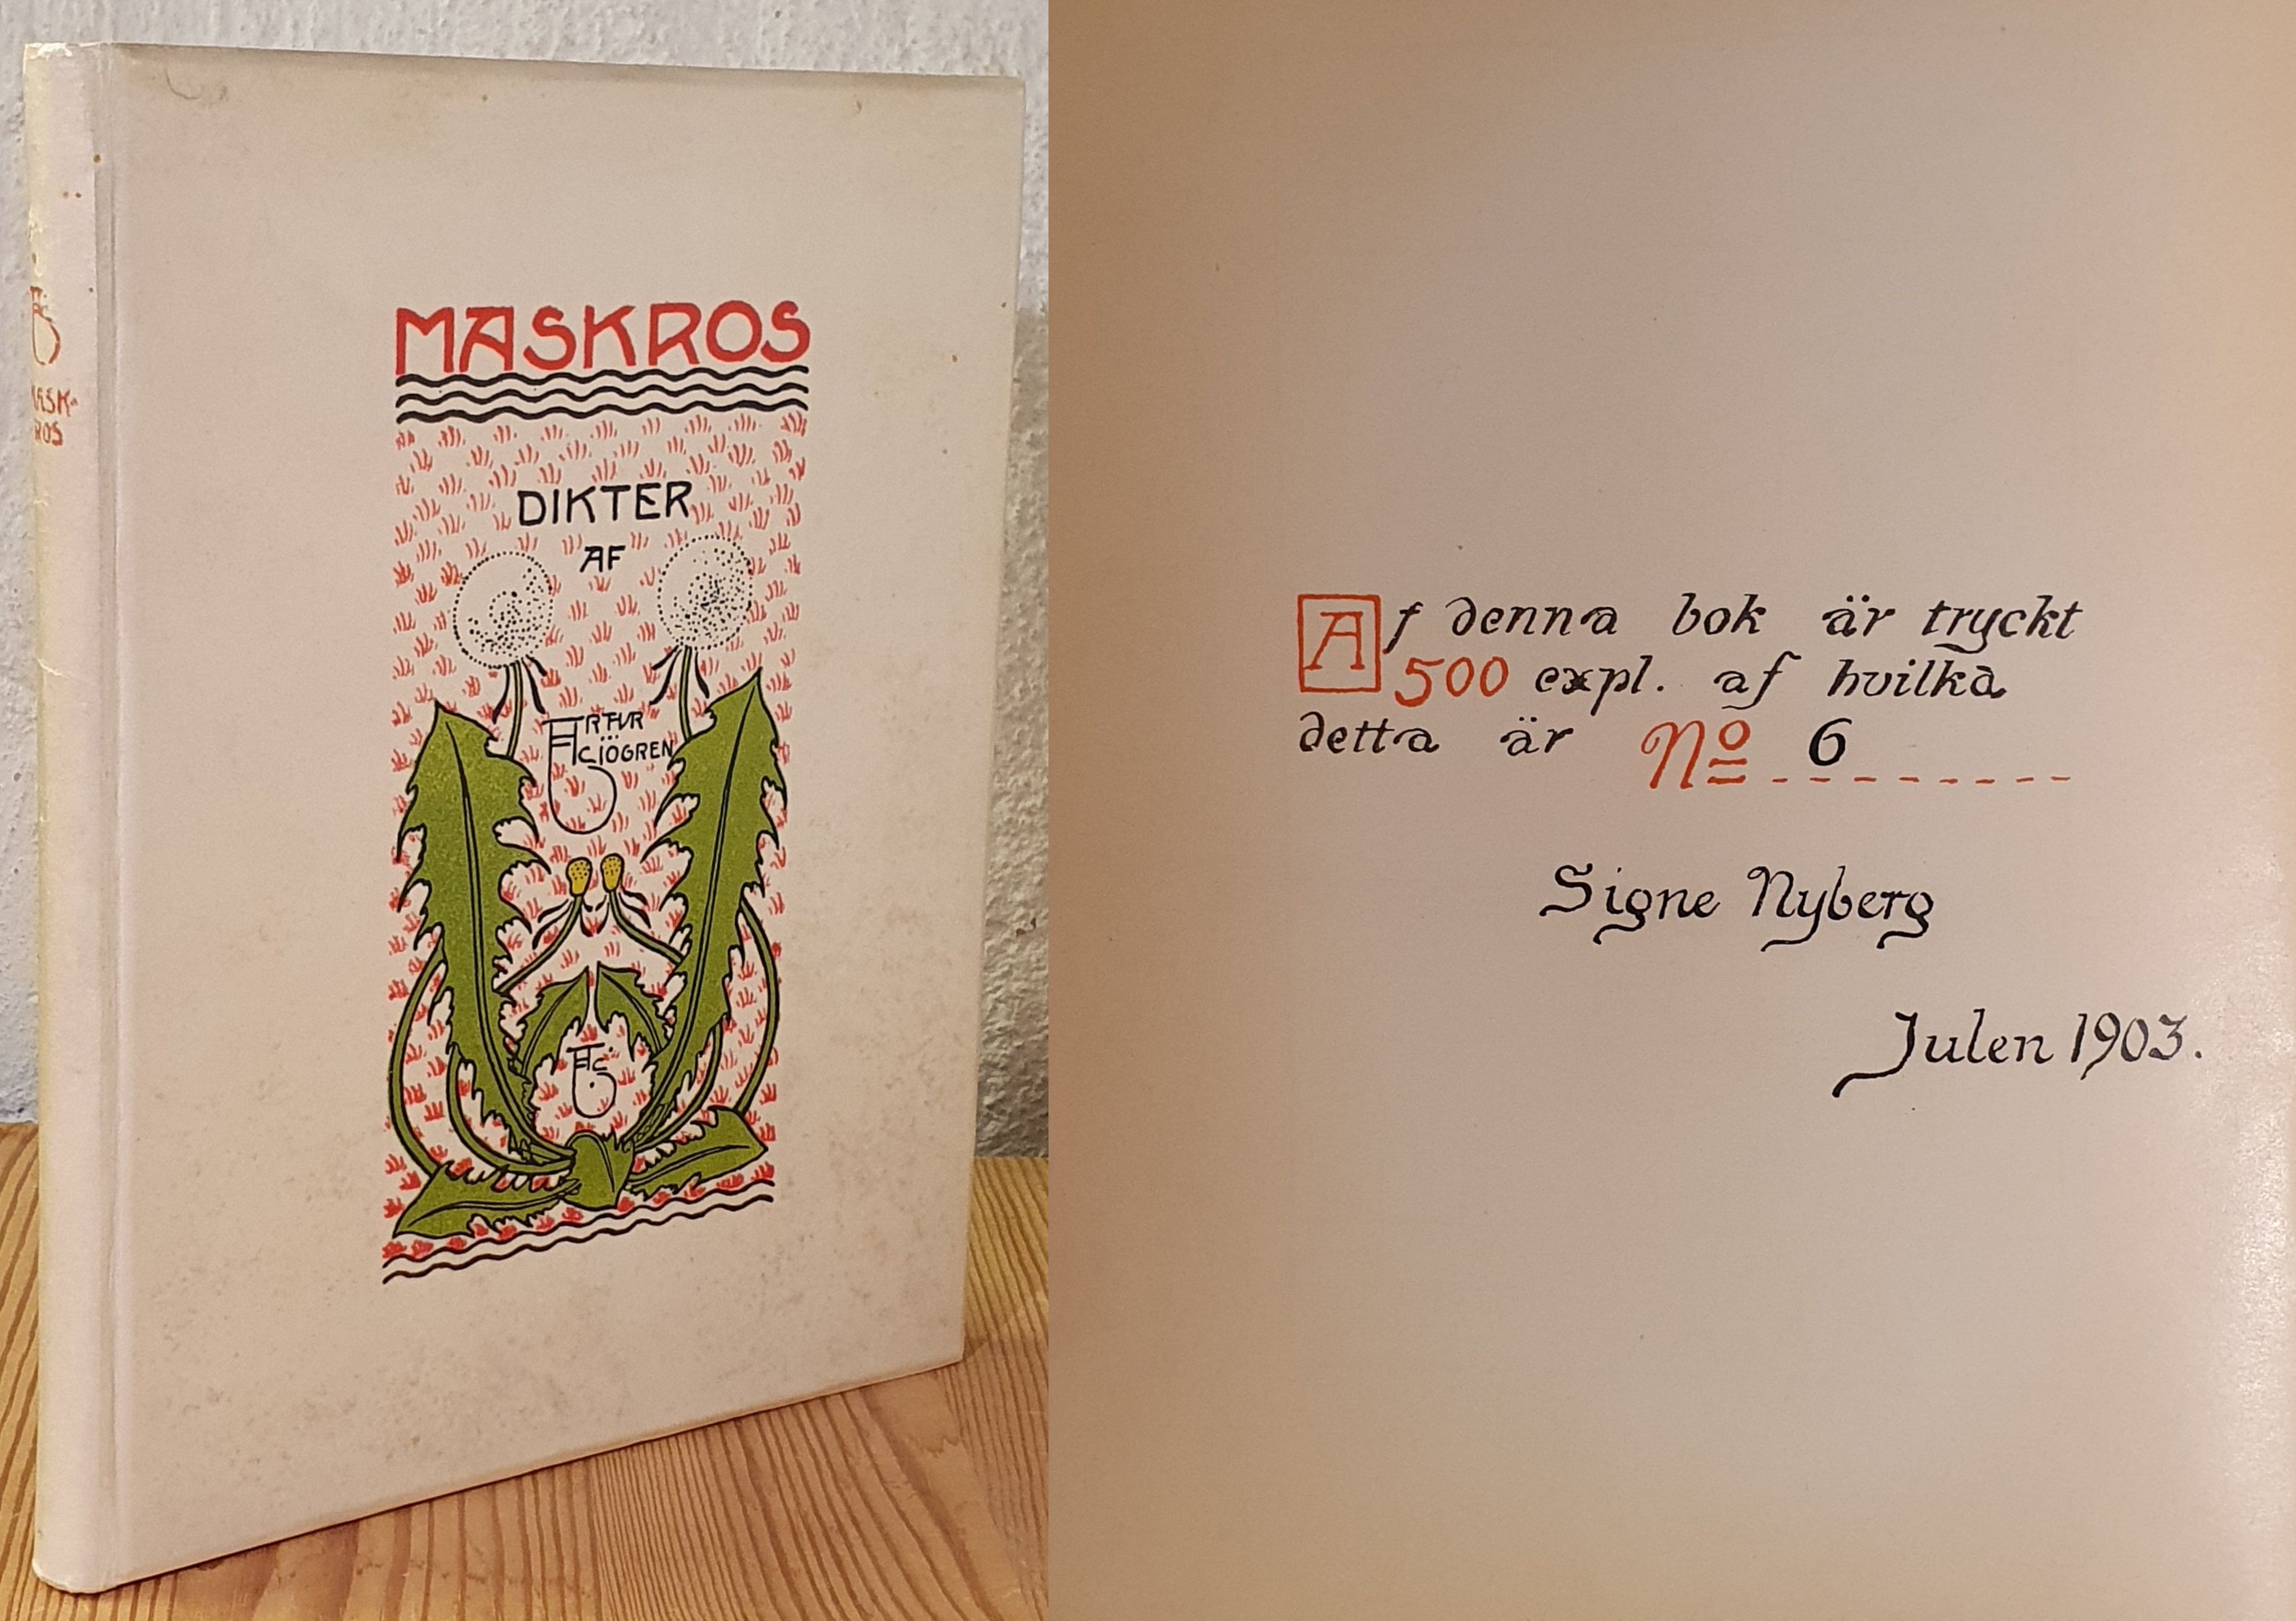 MASK-
ROS
MASKROS
DIKTER
AF
ARTUR
SJÖGREN
AS
Af denna bok är tryckt
500 expl. af hvilka
detta är No 6
Signe Nyberg
Julen 1903.